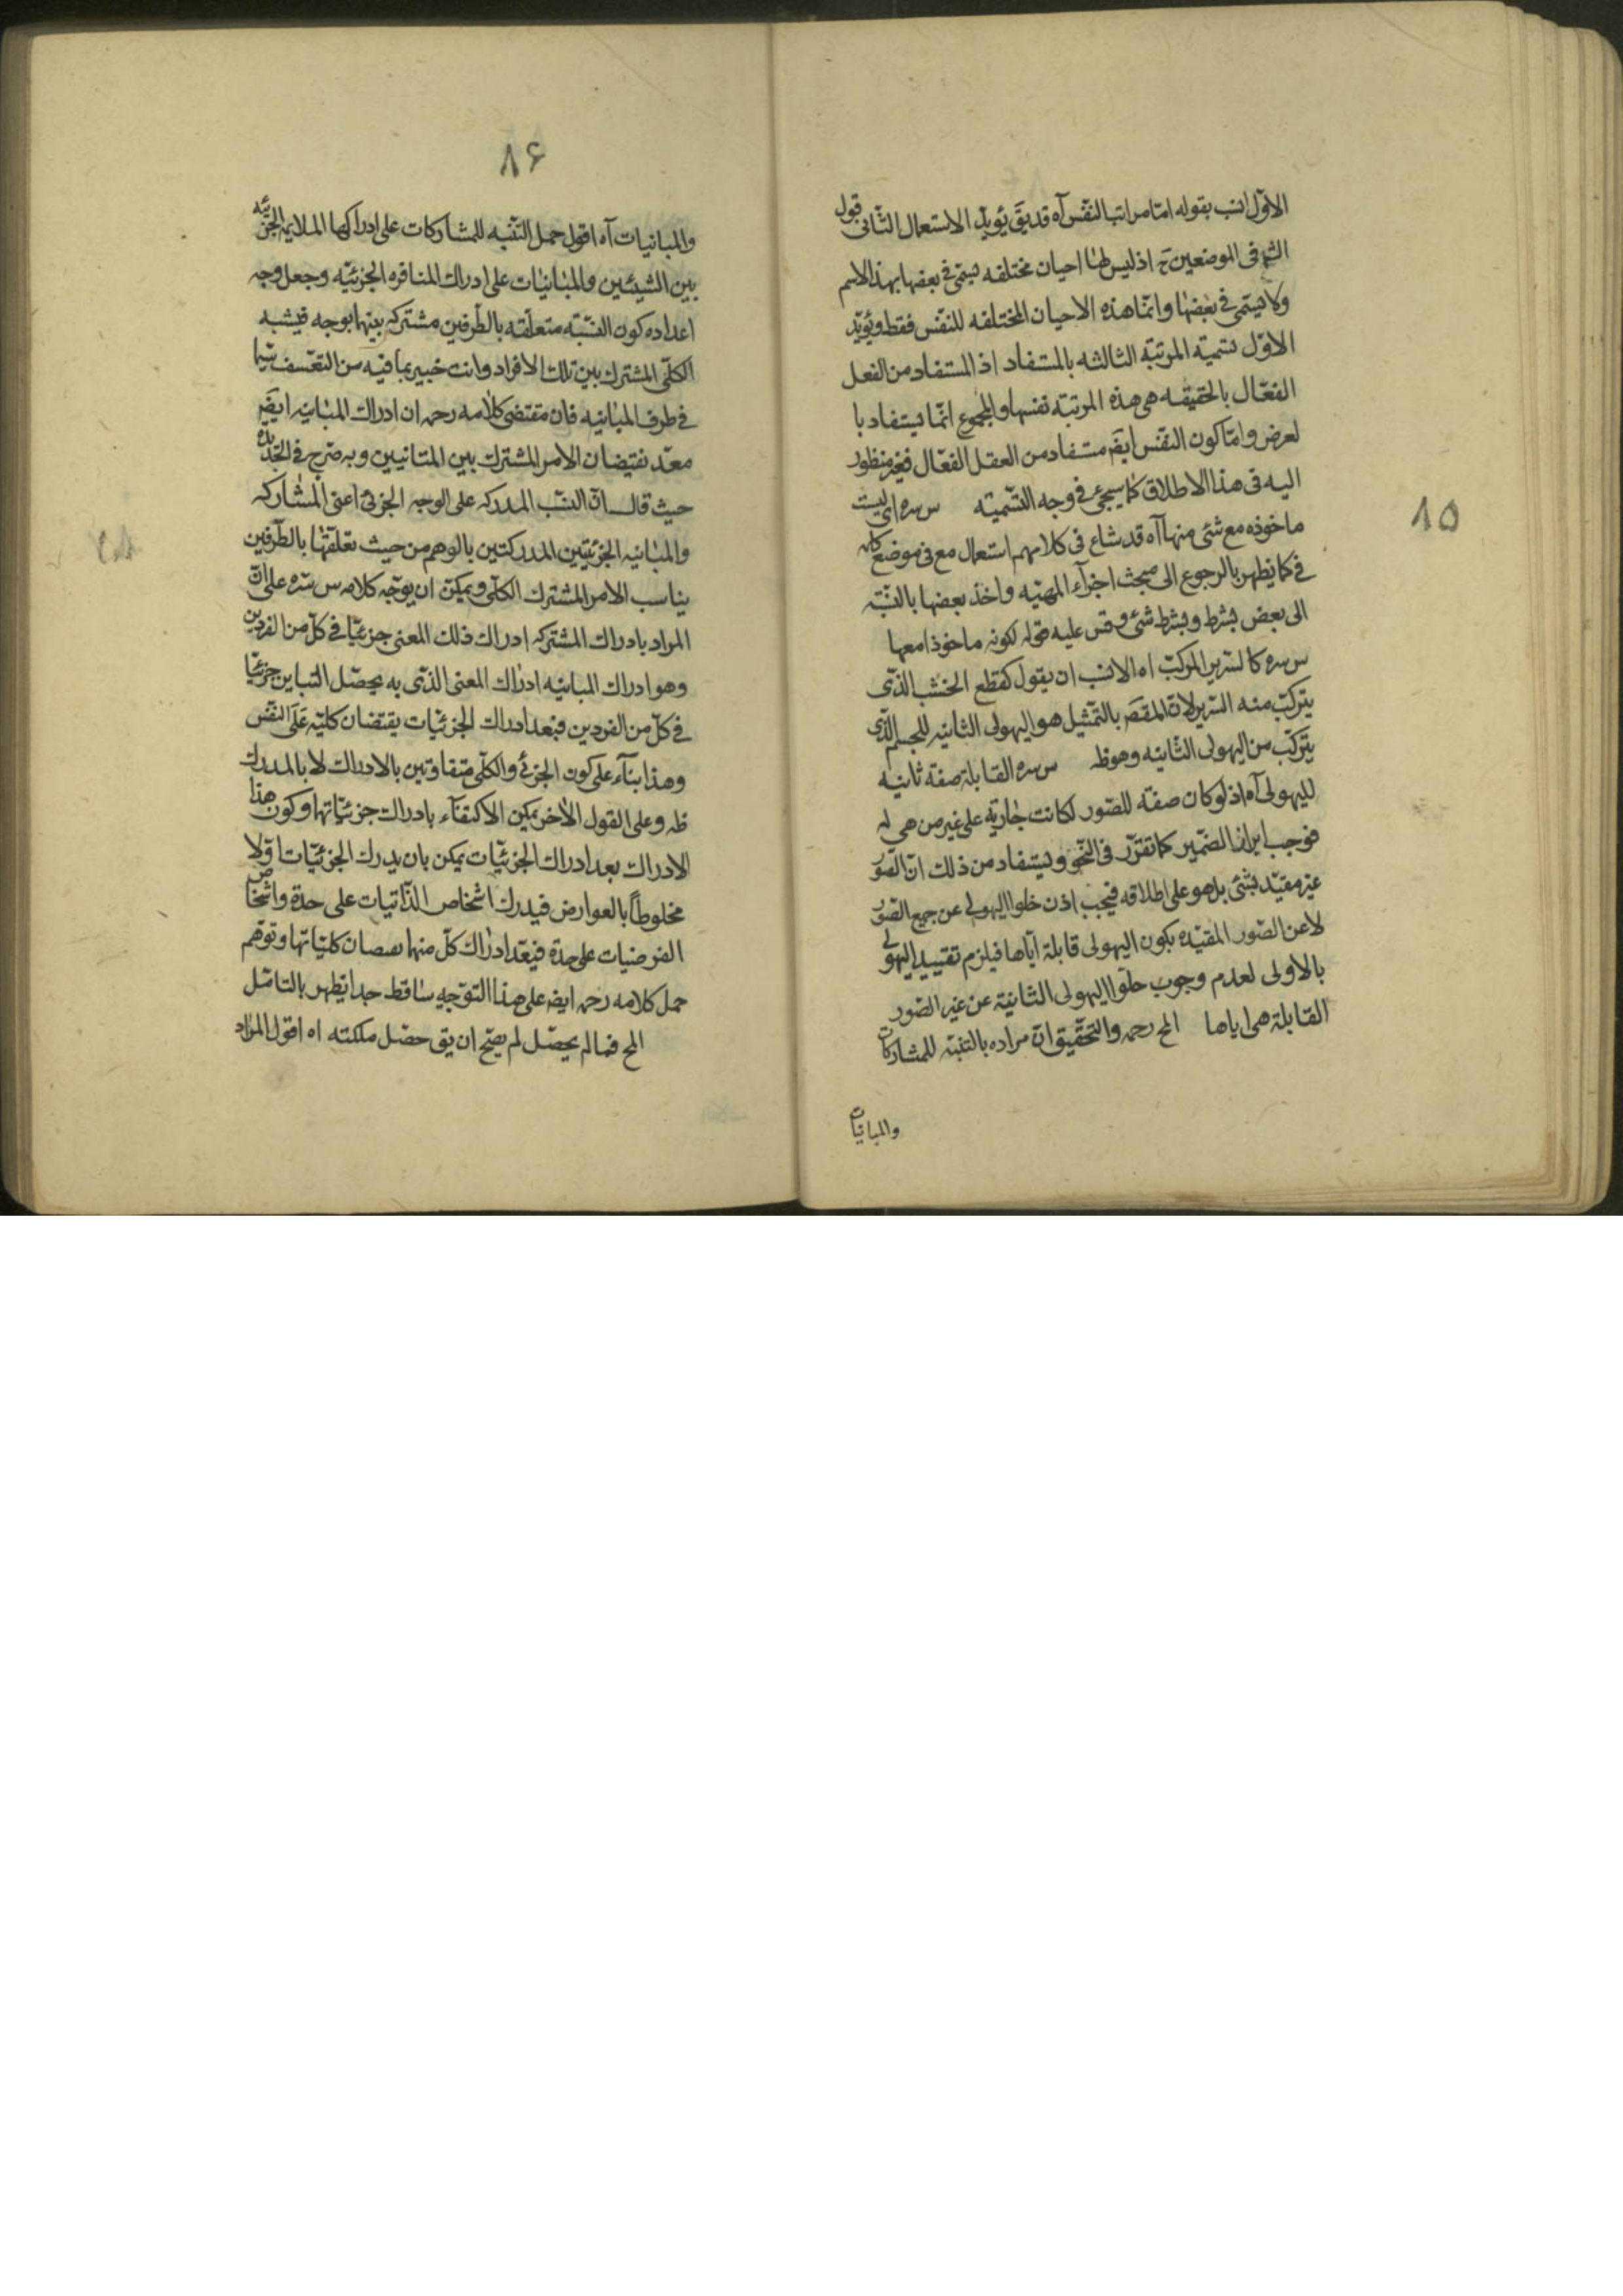 ۸۵
الاوّل انسب بقوله امّا مراتب النّفس آه قد يقَ يؤيّد الاستعمال الثّانى قول
الشم فى الموضعين ح اذ ليس لها احيان مختلفه ليسمّى فى بعضها بهذا الاسم
ولا يسمّى فى بعضها وانّما هذه الاحيان المختلفه للنّفس فقط ويؤيّد
الاوّل تسمية المرتبة الثالثه بالمستفاد اذ المستفاد من الفعل
الفعّال بالحقيقه هى هذه المرتبة نفسها والمجموع انّما يستفاد با
لعرض وامّا كون النّفس ايضَ مستفاد من العقل الفعّال فغير منظور
اليه فى هذا الاطلاق كما سيجئ فى وجه التّسمية س سره اى ليست
ماخوذه مع شئ منها آه قد شاع فى كلامهم استعمال مع فى موضع كلمه
فى كما يظهر بالرجوع الى مبحث اجزآء المهيّه واخذ بعضها بالنّسبة
الى بعض بشرط وبشرط شئ وقس عليه قوله لكونه ماخوذا معها
س سره كالسّرير المركّب اه الانسب ان يقول كقطع الخشب الذّى
يتركّب منه السّرير لانّ المقصَ بالتّمثيل هو الهيولى الثانيه للجسم الّذى
يتركّب من الهيولى الثّانيه وهو ظ س سره القابلة صفة ثانيه
للهيولى آه اذ لو كان صفة للصّور لكانت جارية على غير من هى له
فوجب ابراز الضّمير كما تقرّر فى النّحو ويستفاد من ذلك انّ الصّور
غير مقيّد بشئ بل هو على اطلاقه فيجب اذن خلو الهيولى عن جميع الصّور
لا عن الصّور المقيّده بكون الهيولى قابلة ايّاها فيلزم تقييد الهيولى
بالاولى لعدم وجوب خلوّ الهيولى الثانية عن غير الصّور
القابلة هى اياها المح رحمه والتّحقيق انّ مراده بالتّنبّه للمشاركات
والمباينات
۸۶
والمباينات آه اقول حمل التّنبه للمشاركات على ادراكها الملايمه الجزئيّه
بين الشيئين والمباينات على ادراك المنافره الجزئيّه وجعل وجه
اعداده كون النّسبة متعلّقه بالطّرفين مشتركه بينهما بوجه فيشبه
الكلّى المشترك بين تلك الافراد وانت خبير بما فيه من التعّسف سيّما
فى طرف المباينه فان مقتضى كلامه رحمه ان ادراك المباينه ايضَ
معدّ نفيضان الامر المشترك بين المتباينين وبه صرّح فى الجديده
حيث قال انّ النسّب المدركه على الوجه الجزئى اعنى المشاركه
والمباينه الجزئيّتين المدركتين بالوهم من حيث تعلّقها بالطّرفين
يناسب الامر المشترك الكلّى ويمكن ان يوجّه كلامه س سّره على انّ
المراد بادراك المشتركه ادراك ذلك المعنى جزئيّا فى كلّ من الفردين
وهو ادراك المباينه ادراك المعنى الذّى به يحصّل التباين جزئيّا
فى كلّ من الفردين فبعد ادراك الجزئيّات يقتضان كليّه على النّفس
وهذا بنآء على كون الجزئ والكلّى متفاوتين بالادراك لا بالمدرك
ظ وعلى القول الاخر يمكن الاكتفآء بادراك جزئيّاتها وكون هذا
الادراك بعد ادراك الجزئيّات يمكن بان يدرك الجزئيّات اوّلا
مخلوطاً بالعوارض فيدرك اشخاص الذّاتيات على حدة واشخاص
العرضيات على حدة فيعدّ ادراك كلّ منها كليّاتها وتوهّم
حمل كلامه رحمه ايضَ على هذا التوّجيه ساقط جدا يظهر بالتامّل
المح فما لم يحصّل لم يصّح ان يق حصّل ملكته اه اقول المراد